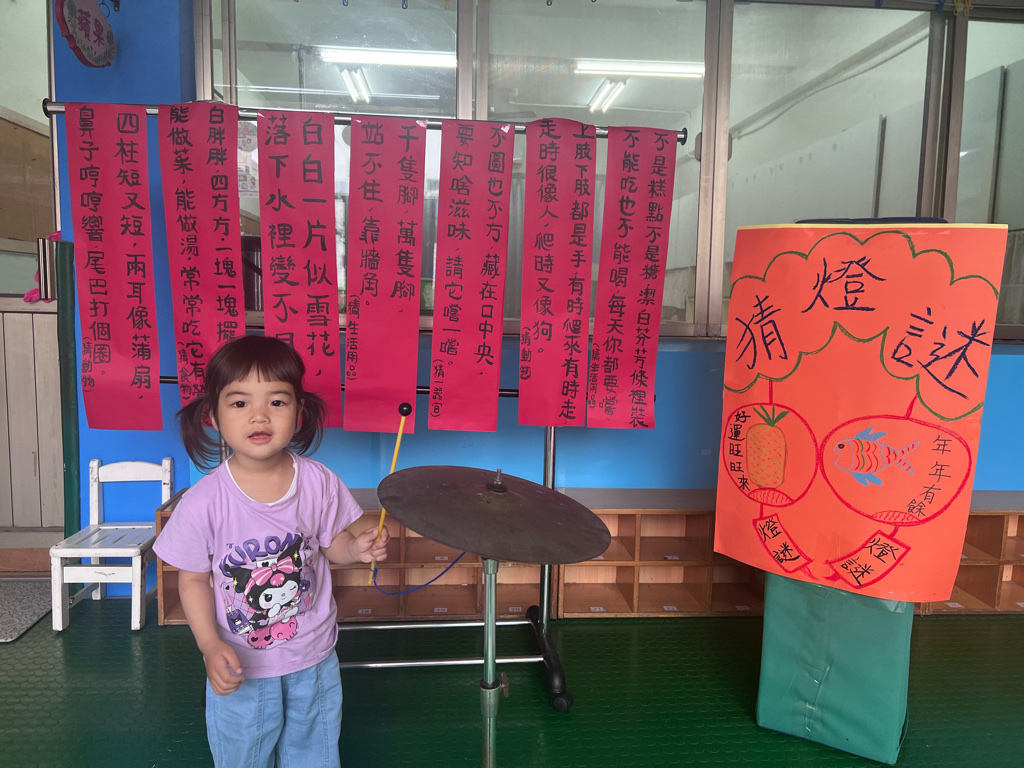 四柱短又短，兩耳像蒲扇，
鼻子哼哼響尾巴打個圈。(猜動物)
白胖胖，四方方，一塊一塊擺
能做菜，能做湯，常常吃它有
白白一片似雪花，
落下水裡變不
千隻腳，萬隻腳，
站不住，靠牆角。(猜生活用品)
不圓也不方，藏在口中央，
要知啥滋味，請它嚐一嚐。(猜一器官)
上肢下肢都是手有時爬來有時走
走時很像人，爬時又像狗。(猜動物)
不是糕點不是糖潔白芬芳條裡裝
不能吃也不能喝每天你都要嚐(猜生活用品)
猜燈謎
好運旺旺來
年年有餘
燈謎
燈謎
KUROMI